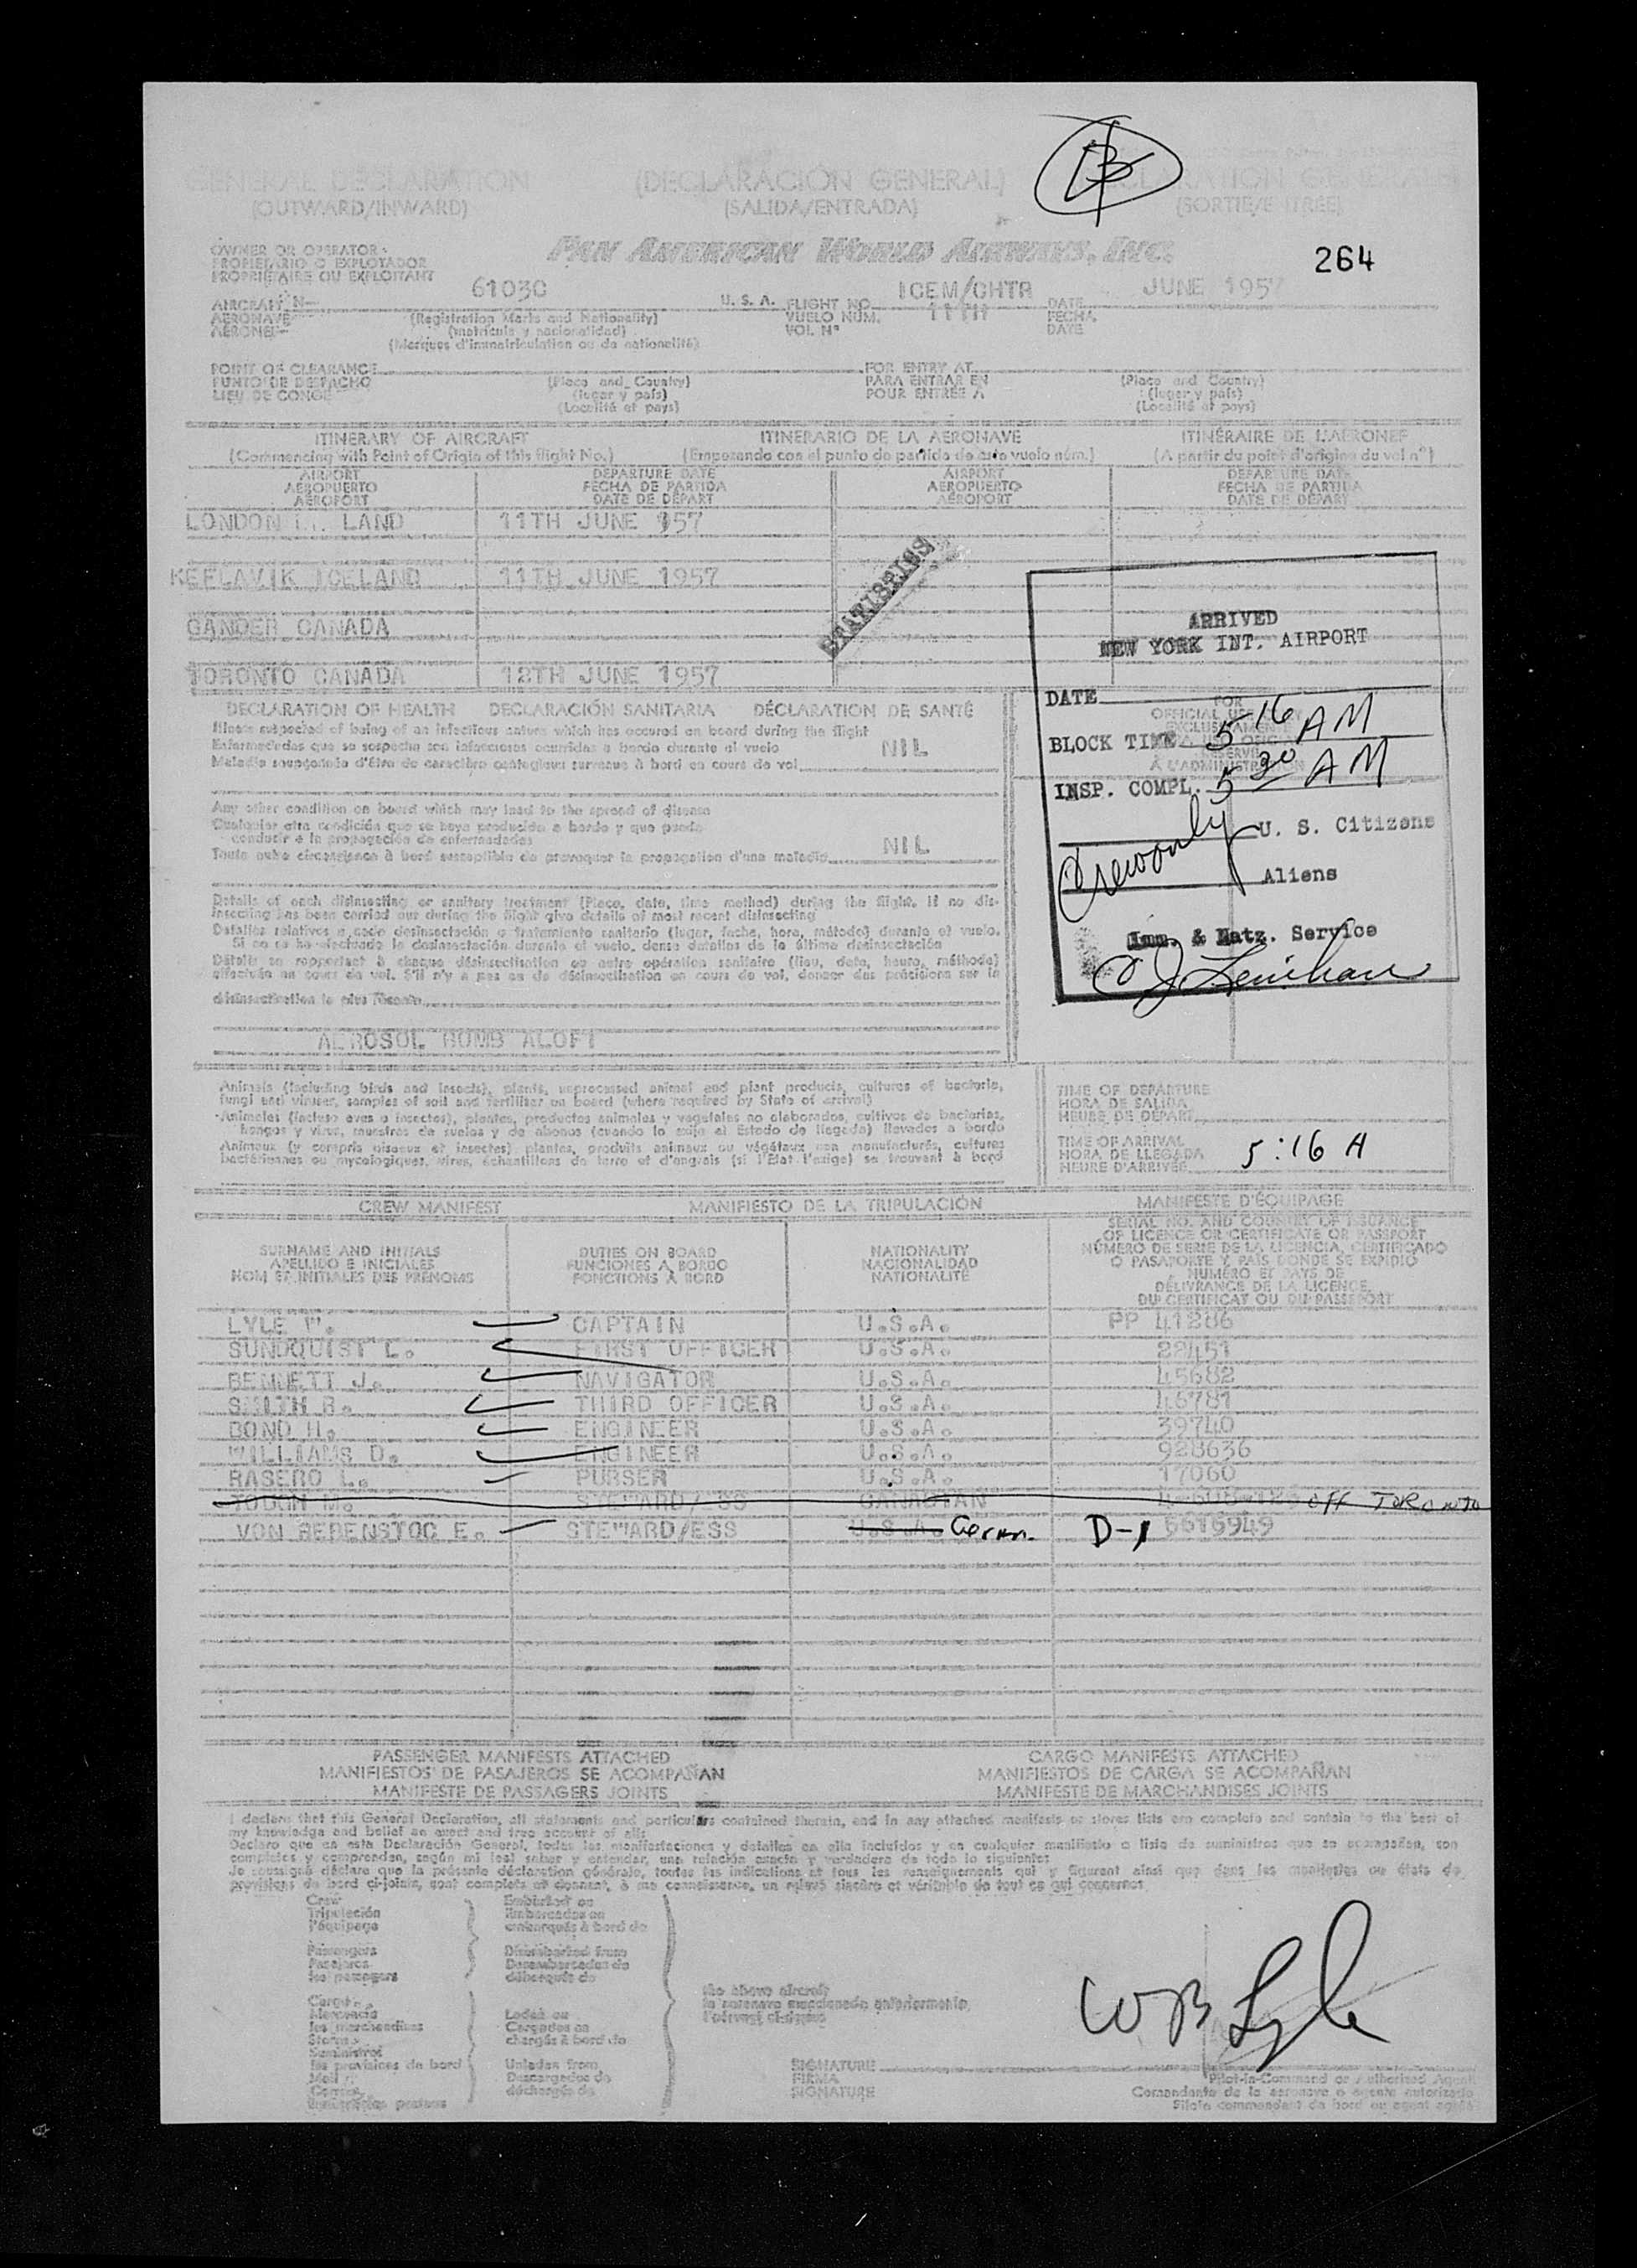 B
GENERAL DECLARATION (DECLARACIÓN GENERAL)
(OUTWARD/INWARD) (SALIDA/ENTRADA) (SORTIE/ENTRÉE)
OWNER OR OPERATOR
PROPIETARIO O EXPLOTADOR
PROPRIÉTAIRE OU EXPLOITANT
PAN AMERICAN WORLD AIRWAYS, INC.
264
AIRCRAFT N- 61030 U. S. A. FLIGHT NO. ICEM/CHTR 11TH DATE JUNE 1957
AERONAVE (Registration Marks and Nationality) VUELO NÚM. FECHA
AÉRONEF (matrícula y nacionalidad) VOL Nº DATE
(Marques d'immatriculation ou de nationalité)
POINT OF CLEARANCE FOR ENTRY AT
PUNTO DE DESPACHO (Place and Country) PARA ENTRAR EN (Place and Country)
LIEU DE CONGÉ (lugar y país) POUR ENTRÉE A (lugar y país)
(Localité et pays) (Localité et pays)
ITINERARY OF AIRCRAFT ITINERARIO DE LA AERONAVE ITINÉRAIRE DE L'AÉRONEF
(Commencing with Point of Origin of this flight No.) (Empezando con el punto de partida de este vuelo núm.) (A partir du point d'origine du vol nº)
AIRPORT DEPARTURE DATE AIRPORT DEPARTURE DATE
AEROPUERTO FECHA DE PARTIDA AEROPUERTO FECHA DE PARTIDA
AÉROPORT DATE DE DÉPART AÉROPORT DATE DE DÉPART
LONDON LAND 11TH JUNE 957
KEFLAVIK ICELAND 11TH JUNE 1957
GANDER CANADA
TORONTO CANADA 12TH JUNE 1957
STATISTICS
ARRIVED
NEW YORK INT. AIRPORT
DATE
BLOCK TIME 5 16 AM
INSP. COMPL. 5 30 AM
Crew only U. S. Citizens
Aliens
Imm. & Natz. Service
C J Lenihan
FOR
OFFICIAL USE
DECLARATION OF HEALTH DECLARACIÓN SANITARIA DÉCLARATION DE SANTÉ
Illness suspected of being of an infectious nature which has occured on board during the flight
Enfermedades que se sospecha son infecciosas ocurridas a bordo durante el vuelo NIL
Maladie soupçonnée d'être de caractère contagieux survenue à bord en cours de vol
Any other condition on board which may lead to the spread of disease
Cualquier otra condición que se haya producido a bordo y que pueda
conducir a la propagación de enfermedades NIL
Toute autre circonstance à bord susceptible de provoquer la propagation d'une maladie
Details of each disinsecting or sanitary treatment (Place, date, time method) during the flight. If no dis-
insecting has been carried out during the flight give details of most recent disinsecting
Detalles relativos a cada desinsectación o tratamiento sanitario (lugar, fecha, hora, método) durante el vuelo.
Si no se ha efectuado la desinsectación durante el vuelo, dense detalles de la última desinsectación
Détails se rapportant à chaque désinsectisation ou autre opération sanitaire (lieu, date, heure, méthode)
effectuée au cours du vol. S'il n'y a pas eu de désinsectisation en cours de vol, donner des précisions sur la
désinsectisation la plus récente
AEROSOL BOMB ALOFT
Animals (including birds and insects), plants, unprocessed animal and plant products, cultures of bacteria,
fungi and viruses, samples of soil and fertiliser on board (where required by State of arrival)
Animales (incluso aves o insectos), plantas, productos animales y vegetales no elaborados, cultivos de bacterias,
hongos y virus, muestras de suelos y de abonos (cuando lo exija el Estado de llegada) llevados a bordo
Animaux (y compris oiseaux et insectes) plantes, produits animaux ou végétaux non manufacturés, cultures
bactériennes ou mycologiques, virus, échantillons de terre et d'engrais (si l'État l'exige) se trouvant à bord
TIME OF DEPARTURE
HORA DE SALIDA
HEURE DE DÉPART
TIME OF ARRIVAL
HORA DE LLEGADA 5:16 A
HEURE D'ARRIVÉE
CREW MANIFEST MANIFIESTO DE LA TRIPULACIÓN MANIFESTE D'ÉQUIPAGE
SURNAME AND INITIALS DUTIES ON BOARD NATIONALITY SERIAL NO. AND COUNTRY OF ISSUANCE
APELLIDO E INICIALES FUNCIONES A BORDO NACIONALIDAD OF LICENCE OR CERTIFICATE OR PASSPORT
NOM ET INITIALES DES PRÉNOMS FONCTIONS À BORD NATIONALITÉ NÚMERO DE SERIE DE LA LICENCIA, CERTIFICADO
O PASAPORTE Y PAÍS DONDE SE EXPIDIÓ
NUMÉRO ET PAYS DE
DÉLIVRANCE DE LA LICENCE,
DU CERTIFICAT OU DU PASSEPORT
LYLE W. CAPTAIN U.S.A. PP 41286
SUNDQUIST L. FIRST OFFICER U.S.A. 22451
BENNETT J. NAVIGATOR U.S.A. 45682
SMITH R. THIRD OFFICER U.S.A. 46781
BOND H. ENGINEER U.S.A. 39740
WILLIAMS D. ENGINEER U.S.A. 928636
RASERO L. PURSER U.S.A. 17060
TODOH M. STEWARD/ESS CANADIAN OFF TORONTO
VON BEBENSTOC E. STEWARD/ESS U.S.A. Germ. D-1 6619949
PASSENGER MANIFESTS ATTACHED CARGO MANIFESTS ATTACHED
MANIFIESTOS DE PASAJEROS SE ACOMPAÑAN MANIFIESTOS DE CARGA SE ACOMPAÑAN
MANIFESTE DE PASSAGERS JOINTS MANIFESTE DE MARCHANDISES JOINTS
I declare that this General Declaration, all statements and particulars contained therein, and in any attached manifests or stores lists are complete and contain to the best of
my knowledge and belief an exact and true account of all:
Declaro que en esta Declaración General, todas las manifestaciones y detalles en ella incluidos y en cualquier manifiesto o lista de suministros que se acompañan, son
completos y comprenden, según mi leal saber y entender, una relación exacta y verdadera de todo lo siguiente:
Je soussigné déclare que la présente déclaration générale, toutes les indications et tous les renseignements qui y figurent ainsi que dans les manifestes ou états de
provisions de bord ci-joints, sont complets et donnent, à ma connaissance, un relevé sincère et véritable de tout ce qui concerne:
Crew Embarked on
Tripulación Embarcados en
l'équipage embarqués à bord de
Passengers Disembarked from
Pasajeros Desembarcados de
les passagers débarqués de
the above aircraft
la aeronave mencionada anteriormente
l'aéronef ci-dessus
Cargo
Mercancía Loaded on
les marchandises Cargados en
Stores chargés à bord de
Suministros
les provisions de bord Unladen from
Mail Descargados de
Correo déchargés de
W B Lyle
SIGNATURE
FIRMA Pilot-in-Command or Authorised Agent
SIGNATURE Comandante de la aeronave o agente autorizado
Pilote commandant de bord ou agent agréé